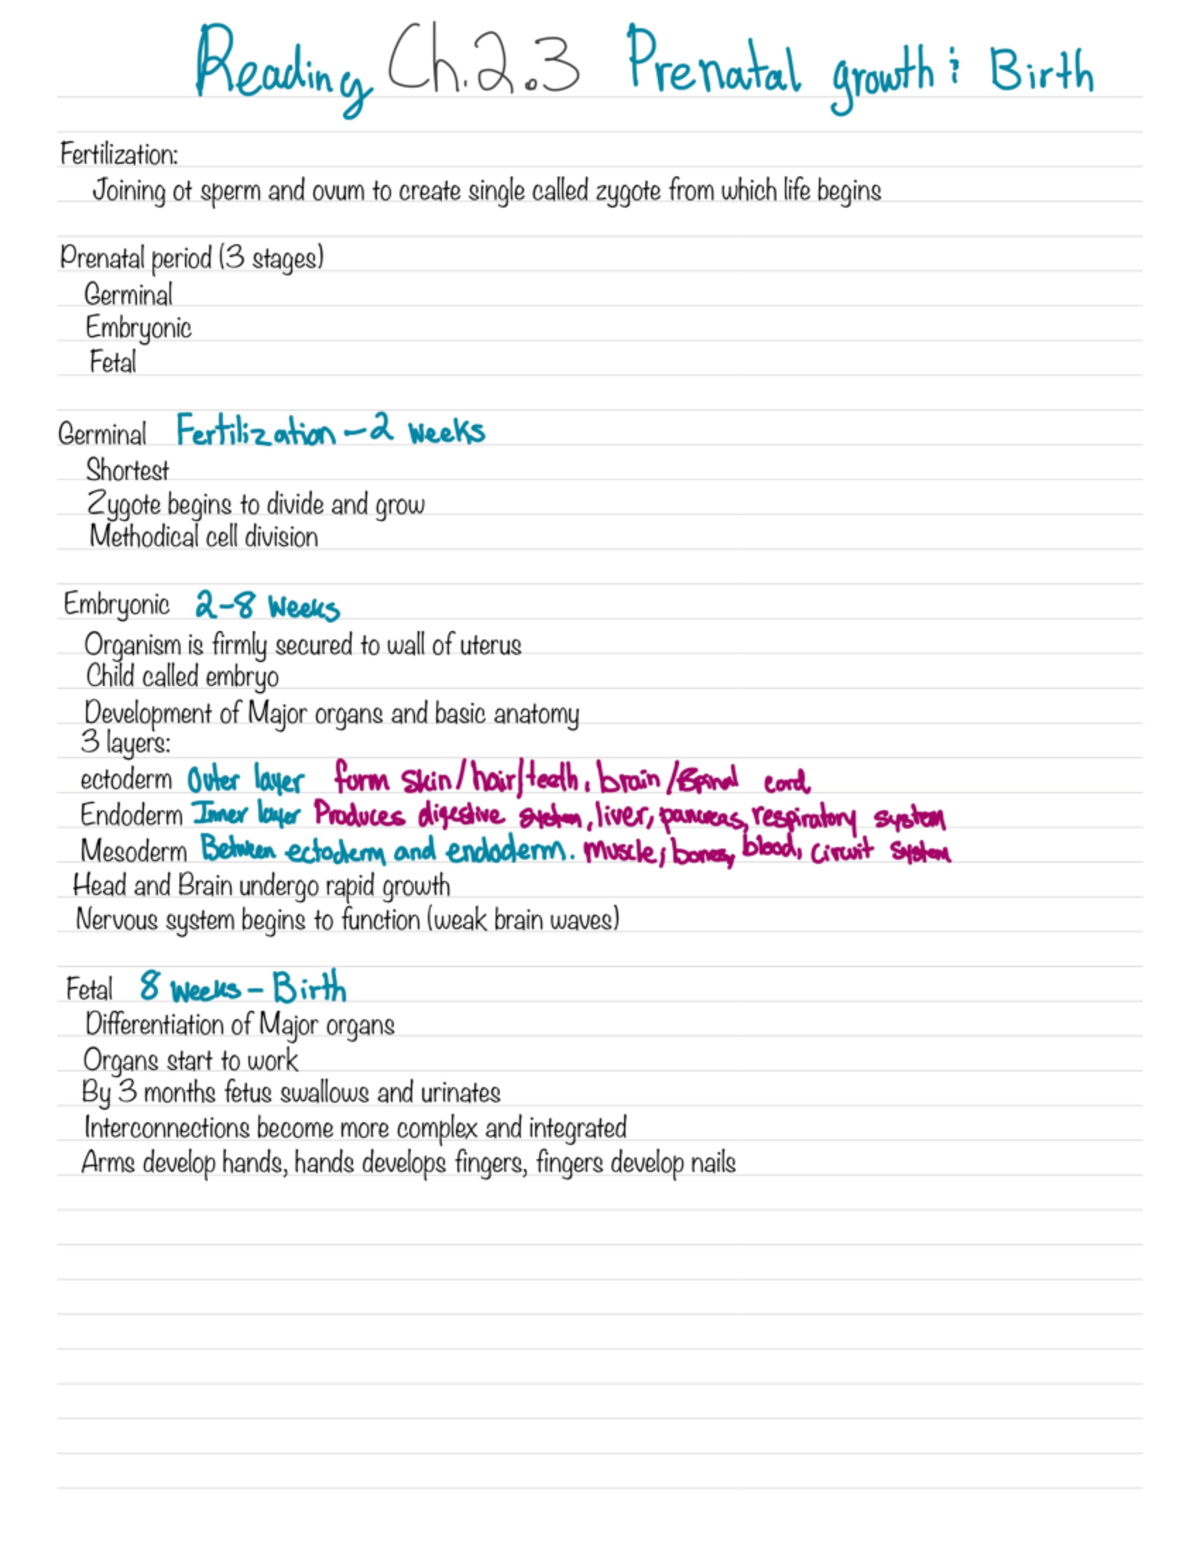 Reading Ch.2.3 Prenatal growth & Birth
Fertilization:
Joining of sperm and ovum to create single called zygote from which life begins
Prenatal period (3 stages)
Germinal
Embryonic
Fetal
Germinal Fertilization - 2 weeks
Shortest
Zygote begins to divide and grow
Methodical cell division
Embryonic 2-8 weeks
Organism is firmly secured to wall of uterus
Child called embryo
Development of Major organs and basic anatomy
3 layers:
ectoderm Outer layer form skin/hair/teeth, brain/spinal cord
Endoderm Inner layer Produces digestive system, liver, pancreas, respiratory system
Mesoderm Between ectoderm and endoderm. muscle, bones, blood, circuit system
Head and Brain undergo rapid growth
Nervous system begins to function (weak brain waves)
Fetal 8 weeks - Birth
Differentiation of Major organs
Organs start to work
By 3 months fetus swallows and urinates
Interconnections become more complex and integrated
Arms develop hands, hands develops fingers, fingers develop nails